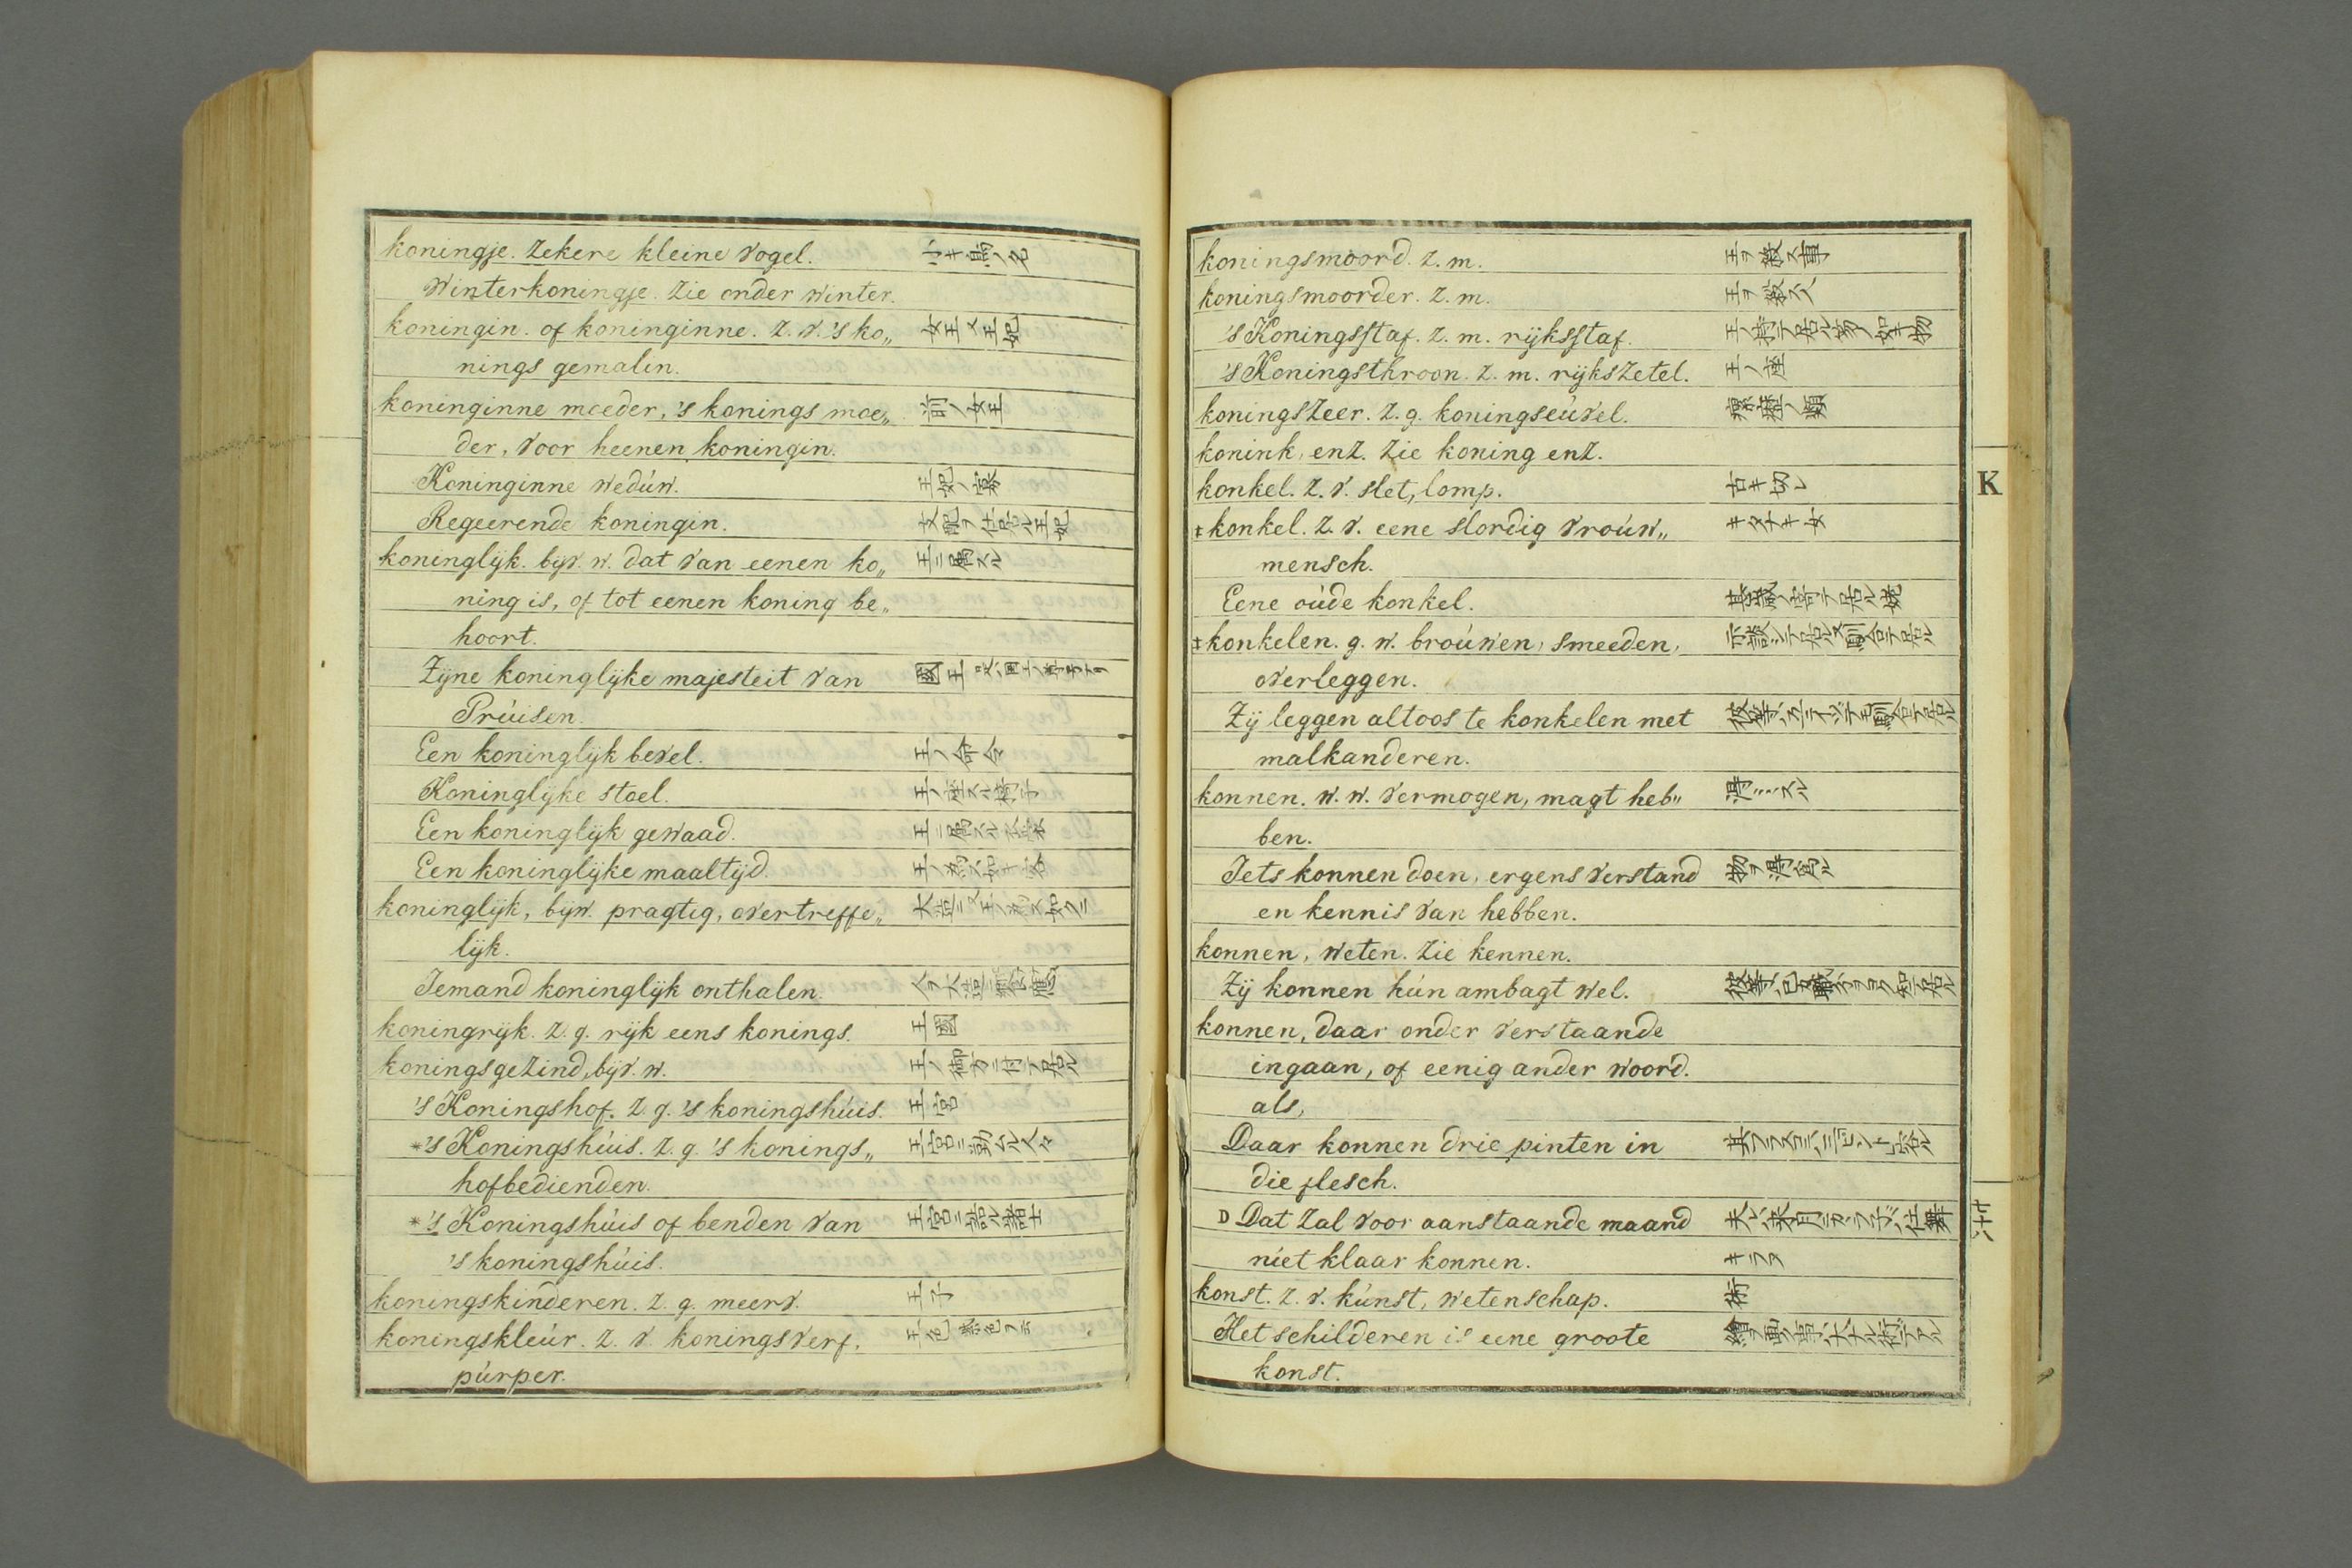 koningje. Zekere kleine vogel. 小キ鳥ノ名
Winterkoningje. Zie onder winter.
koningin. of koninginne. Z. v. 's ko„ 女王又王妃
nings gemalin.
koninginne moeder, 's konings moe„ 前ノ女王
der, voor heenen koningin.
Koninginne weduw. 王妃ノ寡
Regeerende koningin. 支配ヲ仕居ル王妃
koninglijk. bijv. w. dat van eenen ko„ 王ニ属スル
ning is, of tot eenen koning be„
hoort.
Zijne koninglijke majesteit van 國王
Prúisen.
Een koninglijk bevel. 王ノ命令
Koninglijke stoel. 王ノ座スル椅子
Een koninglijk gewaad. 王ニ属スル衣裳
Een koninglijke maaltijd.
koninglijk, bijw. pragtig, overtreffe„
lijk.
Iemand koninglijk onthalen.
koningrijk. Z. g. rijk eens konings. 王國
koningsgezind, bijv. w. 王ノ御方ニ付テ居ル
's Koningshof. Z. g. 's koningshúis. 王宮
*'s Koningshúis. Z. g. 's konings„ 王宮ニ勤ムル人々
hofbedienden.
*'s Koningshúis of benden van 王宮ニ詰ル諸士
's koningshúis.
koningskinderen. Z. g. meerv. 王子
koningskleúr. Z. v. koningsverf. 王色 紫色ヲ云
púrper.
koningsmoord. Z. m. 王ヲ殺ス事
koningsmoorder. Z. m. 王ヲ殺ス人
's Koningsstaf. Z. m. rijksstaf. 王ノ持テ居ル如キ物
's Koningsthroon. Z. m. rijkszetel. 王ノ座
koningszeer. Z. g. koningseúvel. 瘰癧ノ類
konink, enz. Zie koning enz.
konkel. Z. v. slet, lomp. 古キ切レ
‡konkel. Z. v. eene slordig vroúw„ キタナキ女
mensch.
Eene oúde konkel.
‡konkelen. g. w. broúwen, smeeden,
overleggen.
Zij leggen altoos te konkelen met
malkanderen.
konnen. w. w. vermogen, magt heb„ 得…スル
ben.
Iets konnen doen, ergens verstand 物ヲ得為ル
en kennis van hebben.
konnen, weten. Zie kennen.
Zij konnen hún ambagt wel. 彼等ハ己ガ職分ヲヨク知テ居ル
konnen, daar onder verstaande
ingaan, of eenig ander woord.
als,
Daar konnen drie pinten in 其フラスコニハ三ピント容ル
die flesch.
D Dat zal voor aanstaande maand 夫ハ来月ニナラデハ仕舞
niet klaar konnen. キラヌ
konst. Z. v. kúnst, wetenschap. 術
Het schilderen is eene groote 繪ヲ画ク事ハ大ナル術デアル
konst.
K